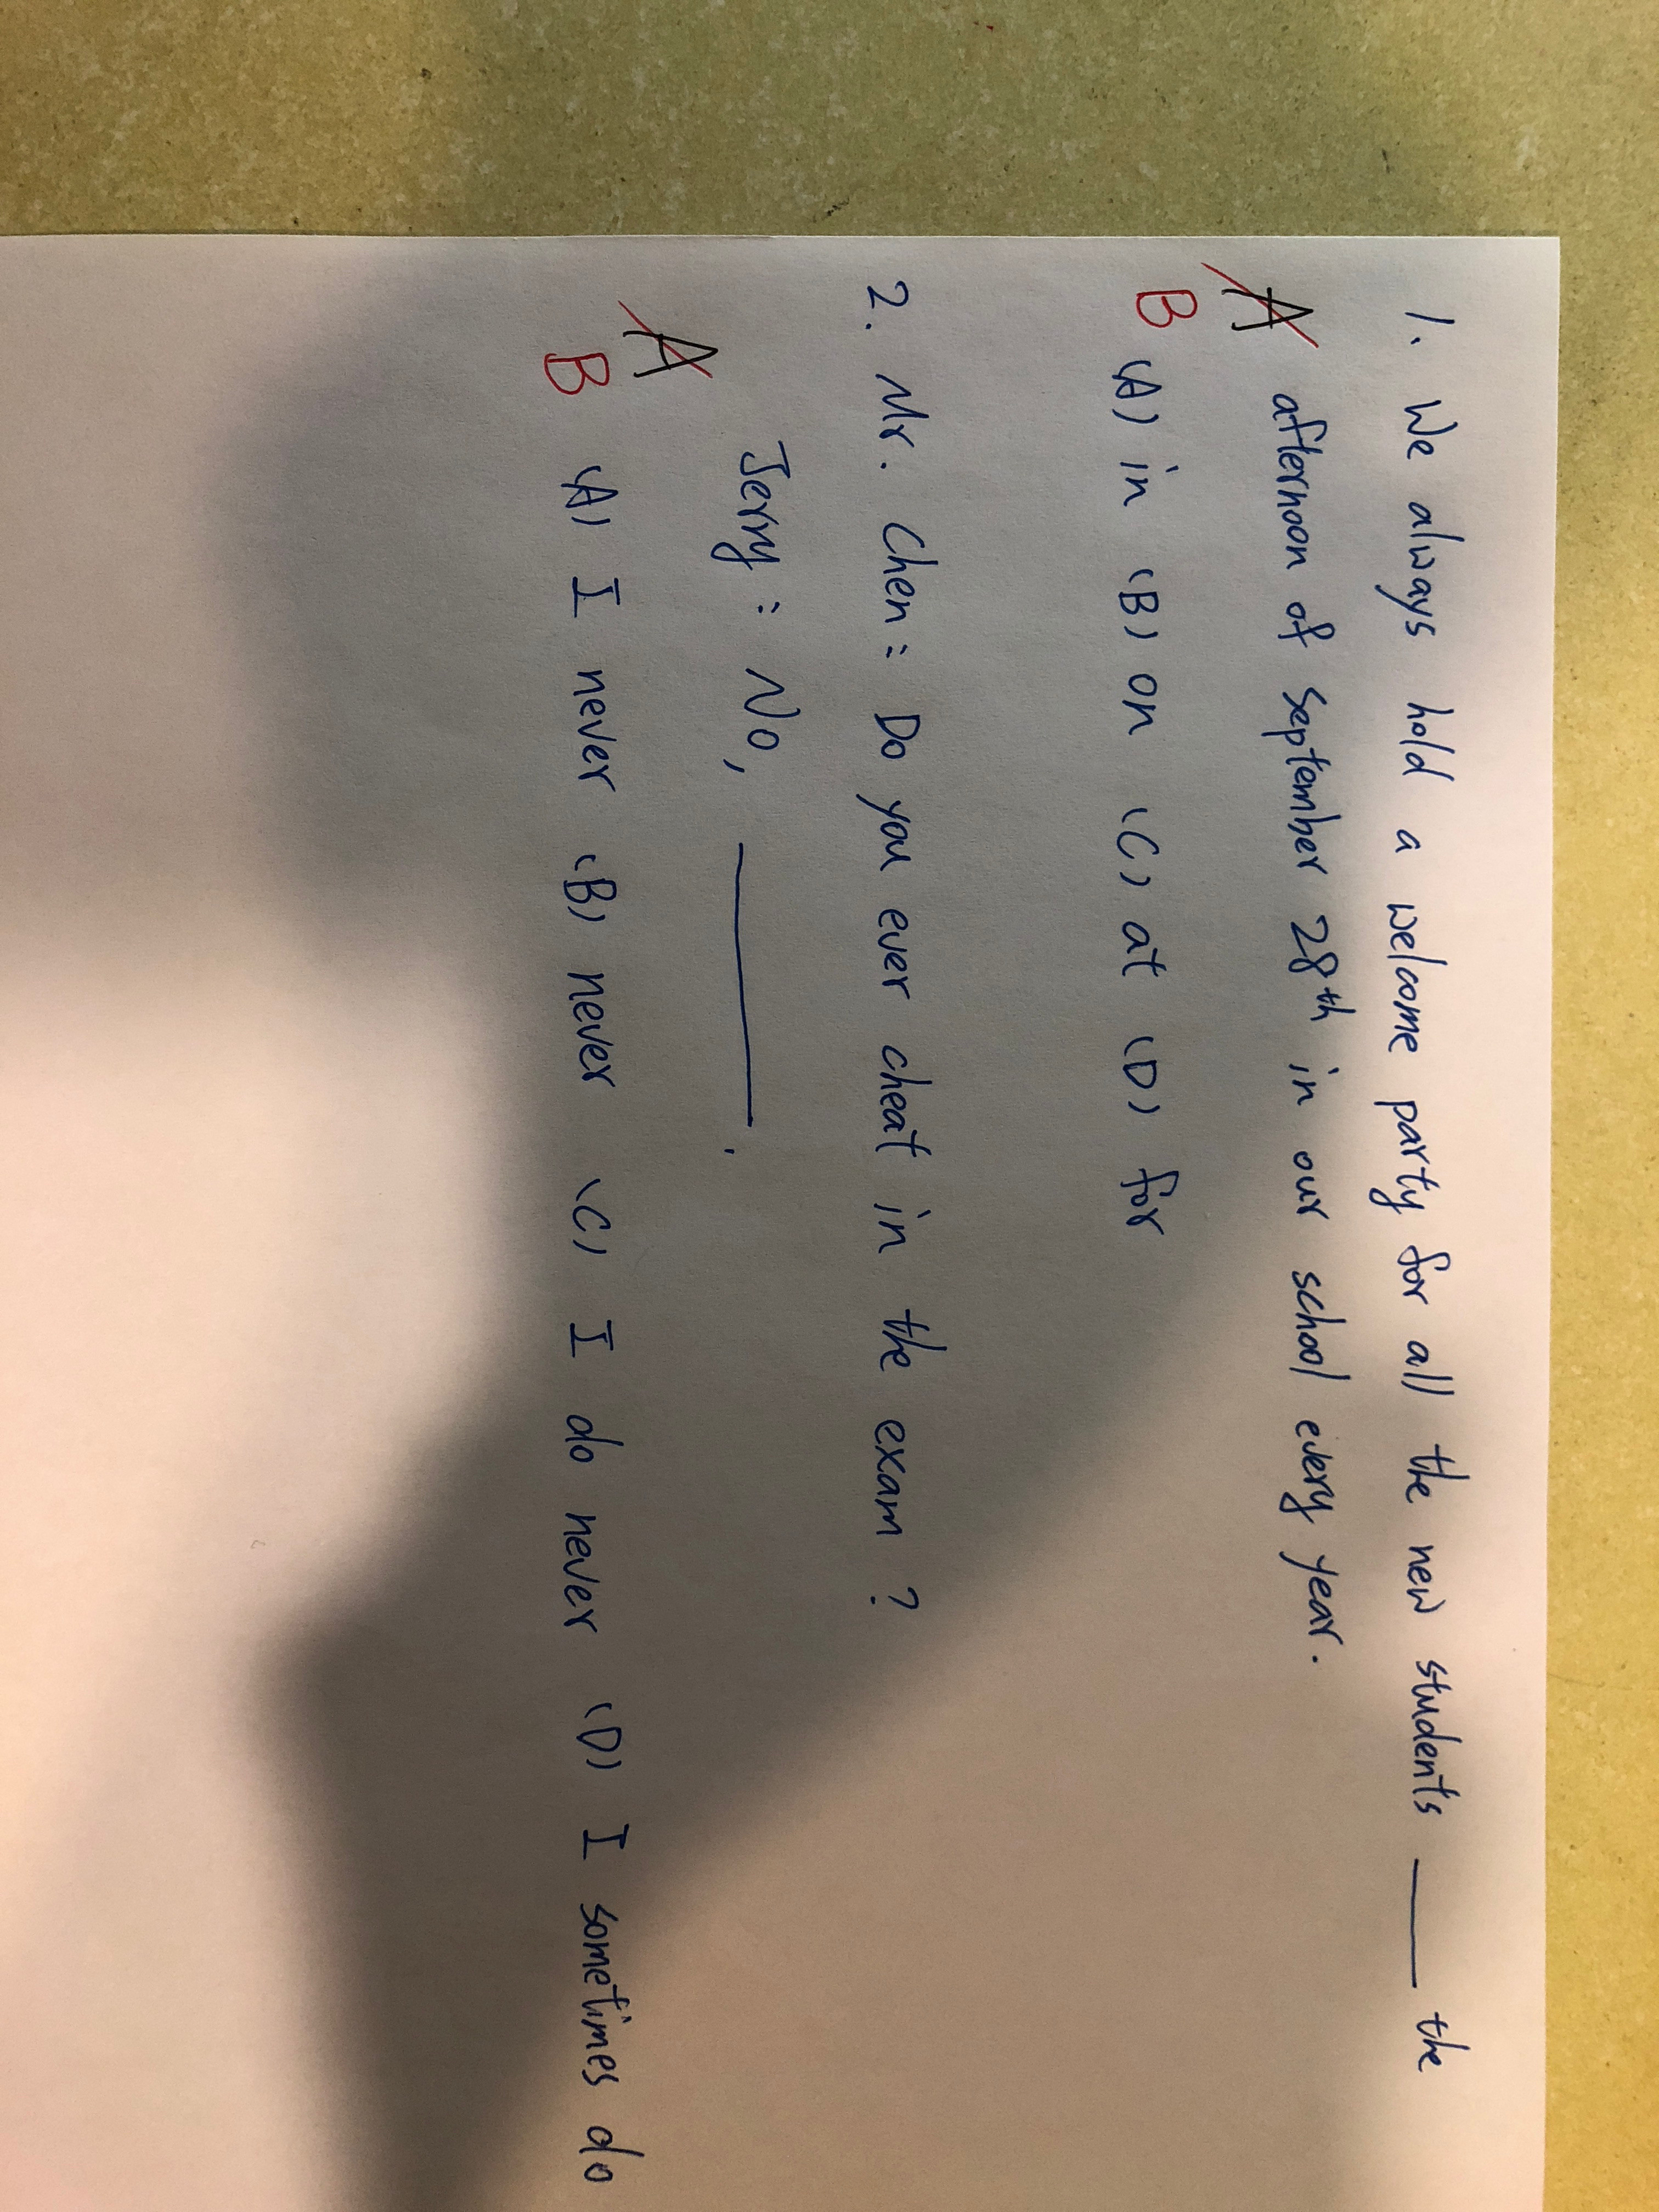 1. We always hold a welcome party for all the new students ____ the
A afternoon of September 28th in our school every year.
B (A) in (B) on (C) at (D) for
2. Mr. Chen: Do you ever cheat in the exam?
Jerry: No, ______.
A
B (A) I never (B) never (C) I do never (D) I sometimes do